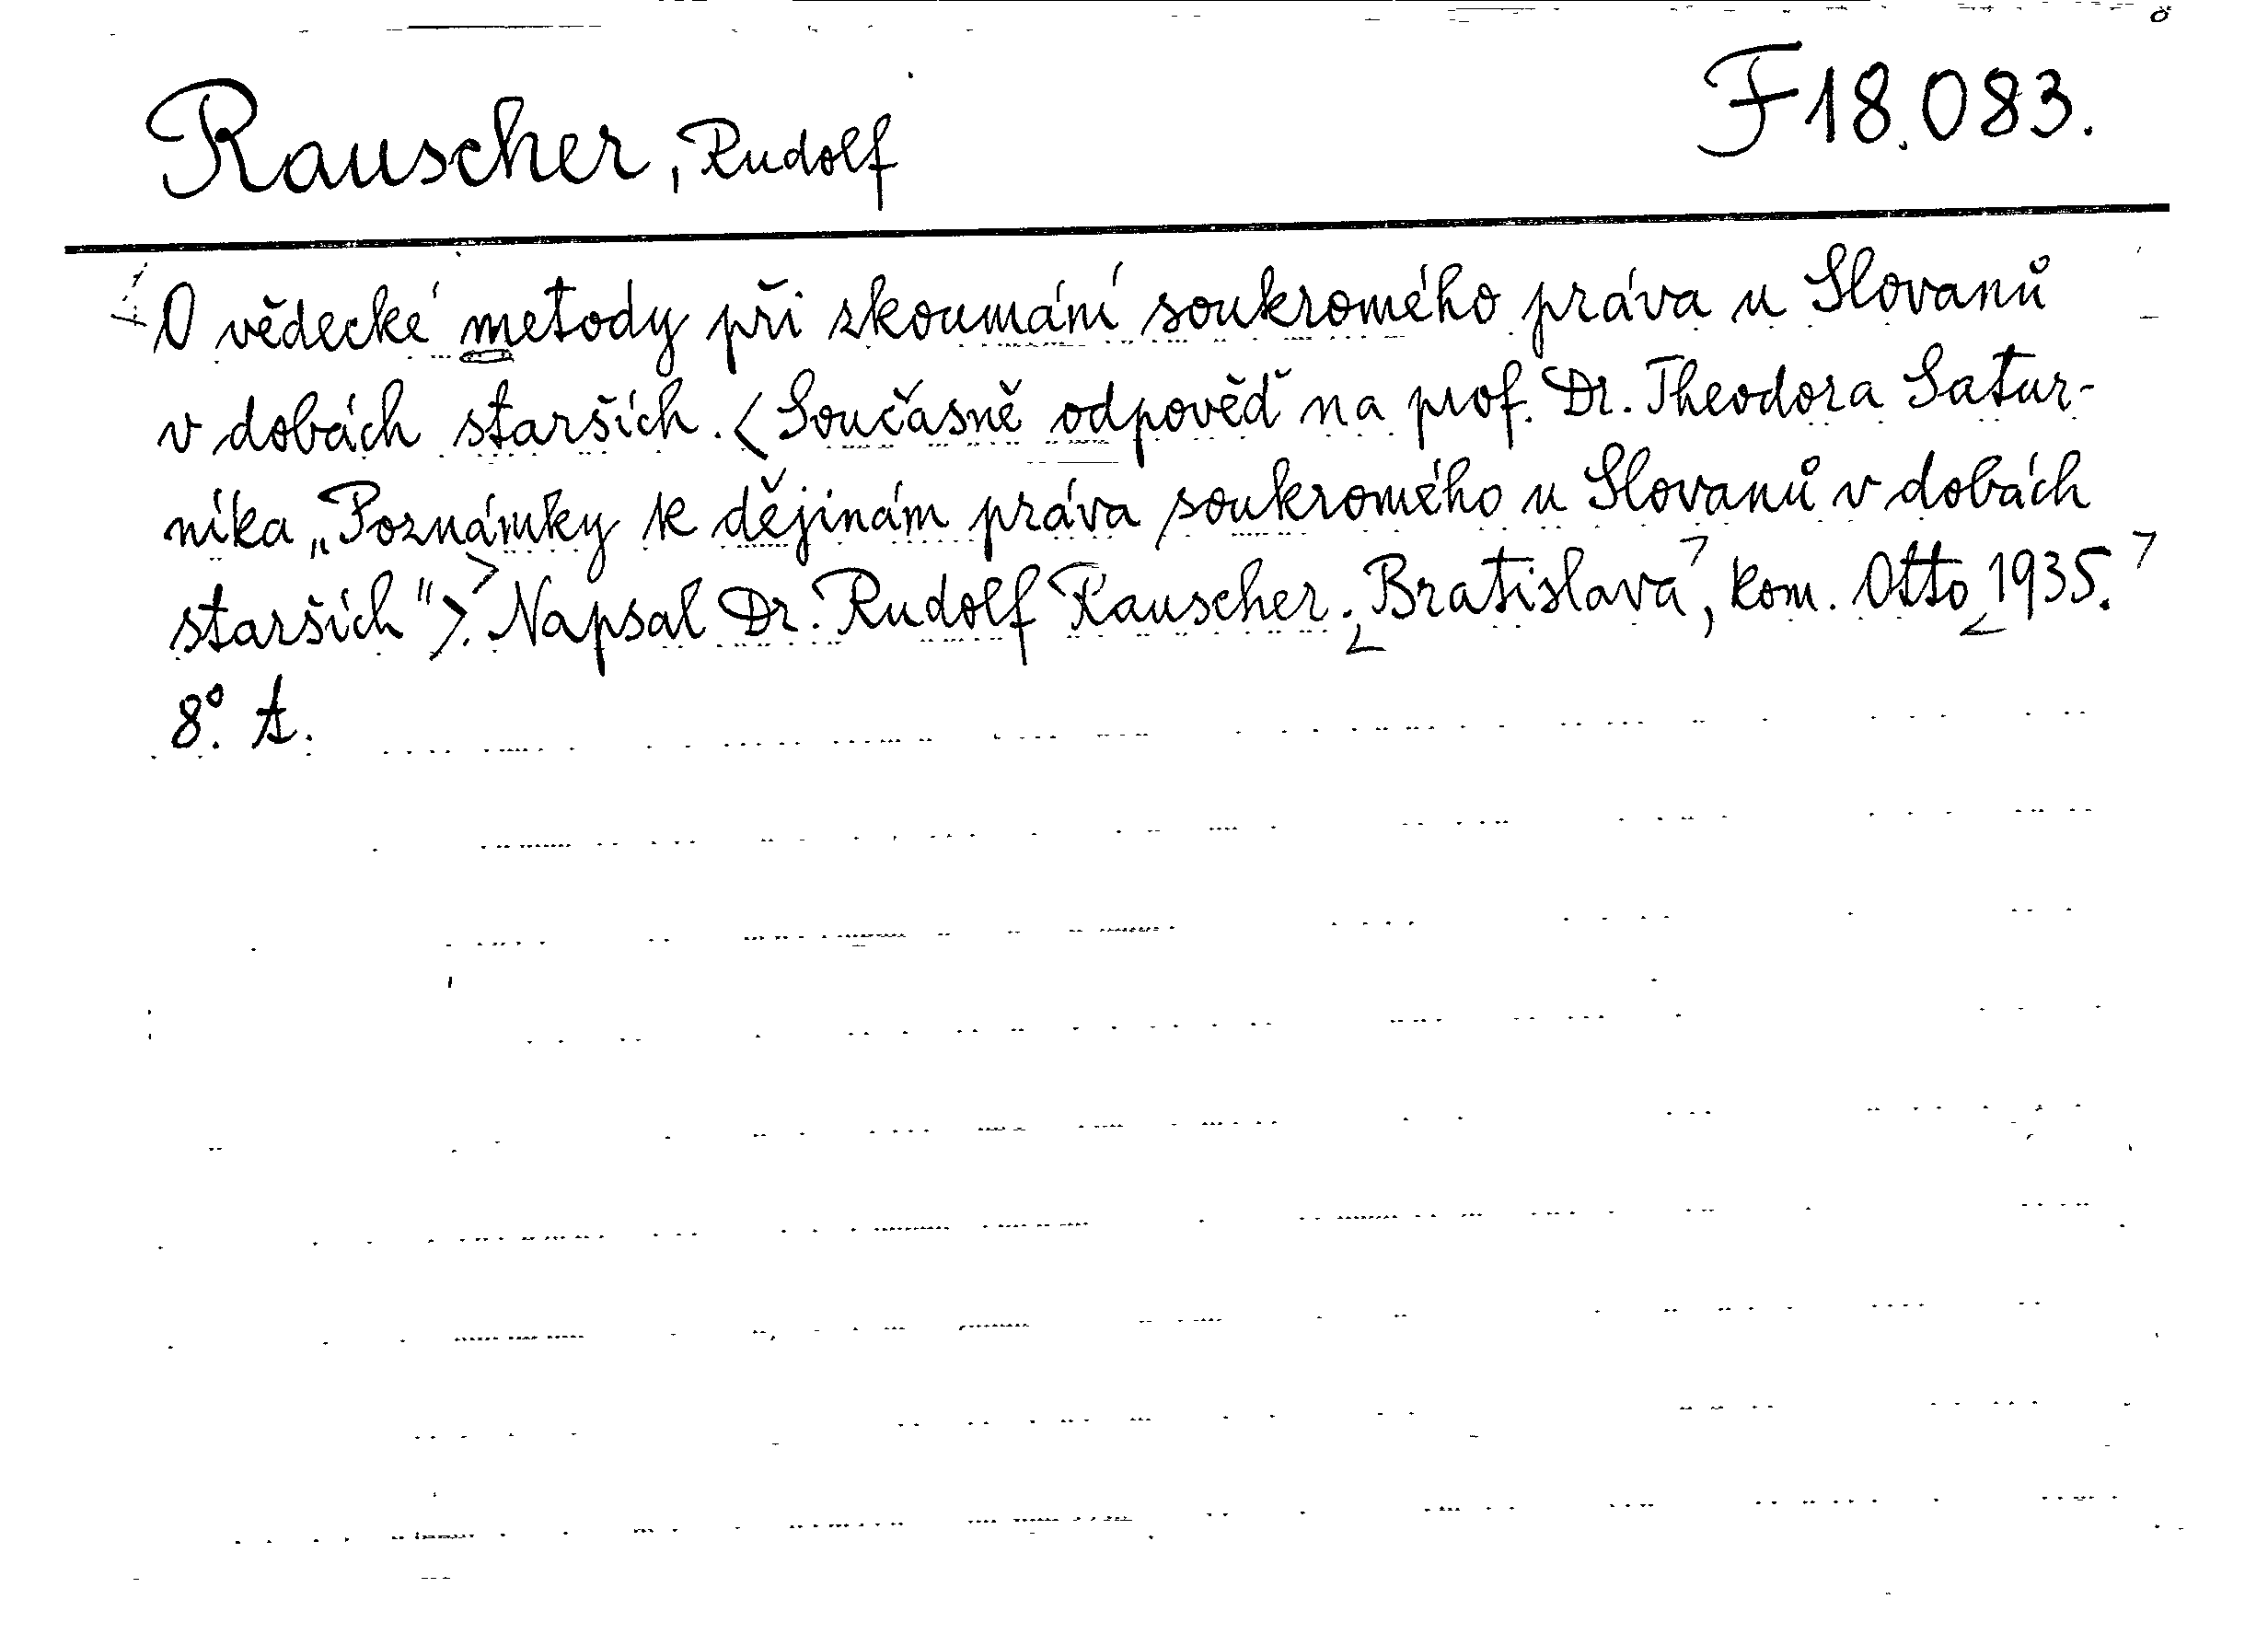 Rauscher, Rudolf
F 18.083.
O vědecké metody při zkoumání soukromého práva u Slovanů
v dobách starších. <Současně odpověď na prof. Dr. Theodora Satur-
níka „Poznámky k dějinám práva soukromého u Slovanů v dobách
starších">. Napsal Dr. Rudolf Rauscher. Bratislava, kom. Otto 1935.
8°. A.